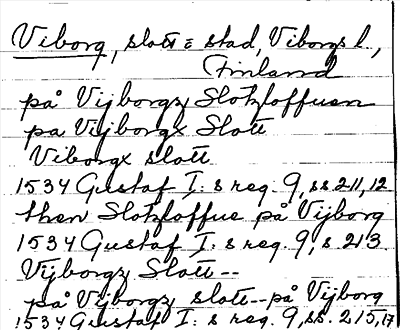 Viborg, slott = stad, Viborgs l,
Finland
på Vijborgz Slotzloffuen
pa Vijborgx Slott
Viborgx slott
1534 Gustaf I: s reg. 9, ss. 211, 12
then Slotzloffue på Vijborg
1534 Gustaf I: s reg. 9, s. 213
Vijborgz Slott--
på Vijborgz slott--på Vijborg
1534 Gustaf I: s reg. 9, ss. 215, 17